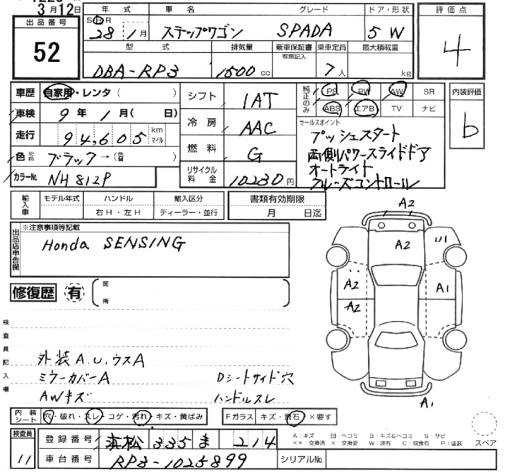 3月12日
出品番号
52
年式 車名 グレード ドア・形状 評価点
28年1月 ステップワゴン SPADA 5W 4
型式 排気量 新車保証書 乗車定員 最大積載量
DBA-RP3 1500cc 7人 kg
車歴 自家用・レンタ( )
車検 9年1月( 日)
走行 94,605 km マイル
色 ブラック→( )
カラーNo. NH812P
シフト IAT
冷房 AAC
燃料 G
リサイクル料金 10230円
純正のみ PS PW AW SR
ABS エアB TV ナビ
内装評価
b
セールスポイント
プッシュスタート
両側パワースライドドア
オートライト
クルーズコントロール
輸入車 モデル年式 ハンドル 輸入区分 書類有効期限
右H・左H ディーラー・並行 月 日迄
※注意事項等記載
Honda SENSING
修復歴 有 箇所
A2
A2 U1
A2 A1
A2 A2
A1
検査員記入欄
外装A.U.ウスA
ミラーカバーA Dシートサイド穴
AWキズ ハンドルスレ
内装シート 穴・破れ・スレ・コゲ・汚れ・キズ・黄ばみ Fガラス キズ・飛石・×要す
スペア
検査員 11
登録番号 浜松 335 ま 214
車台番号 RP3-1025899 シリアルNo.